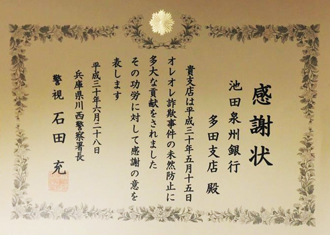 感謝状
池田泉州銀行
多田支店 殿
貴支店は平成三十年五月十五日
オレオレ詐欺事件の未然防止に
多大な貢献をされました
その功労に対して感謝の意を
表します
平成三十年六月二十八日
兵庫県川西警察署長
警視 石田 充